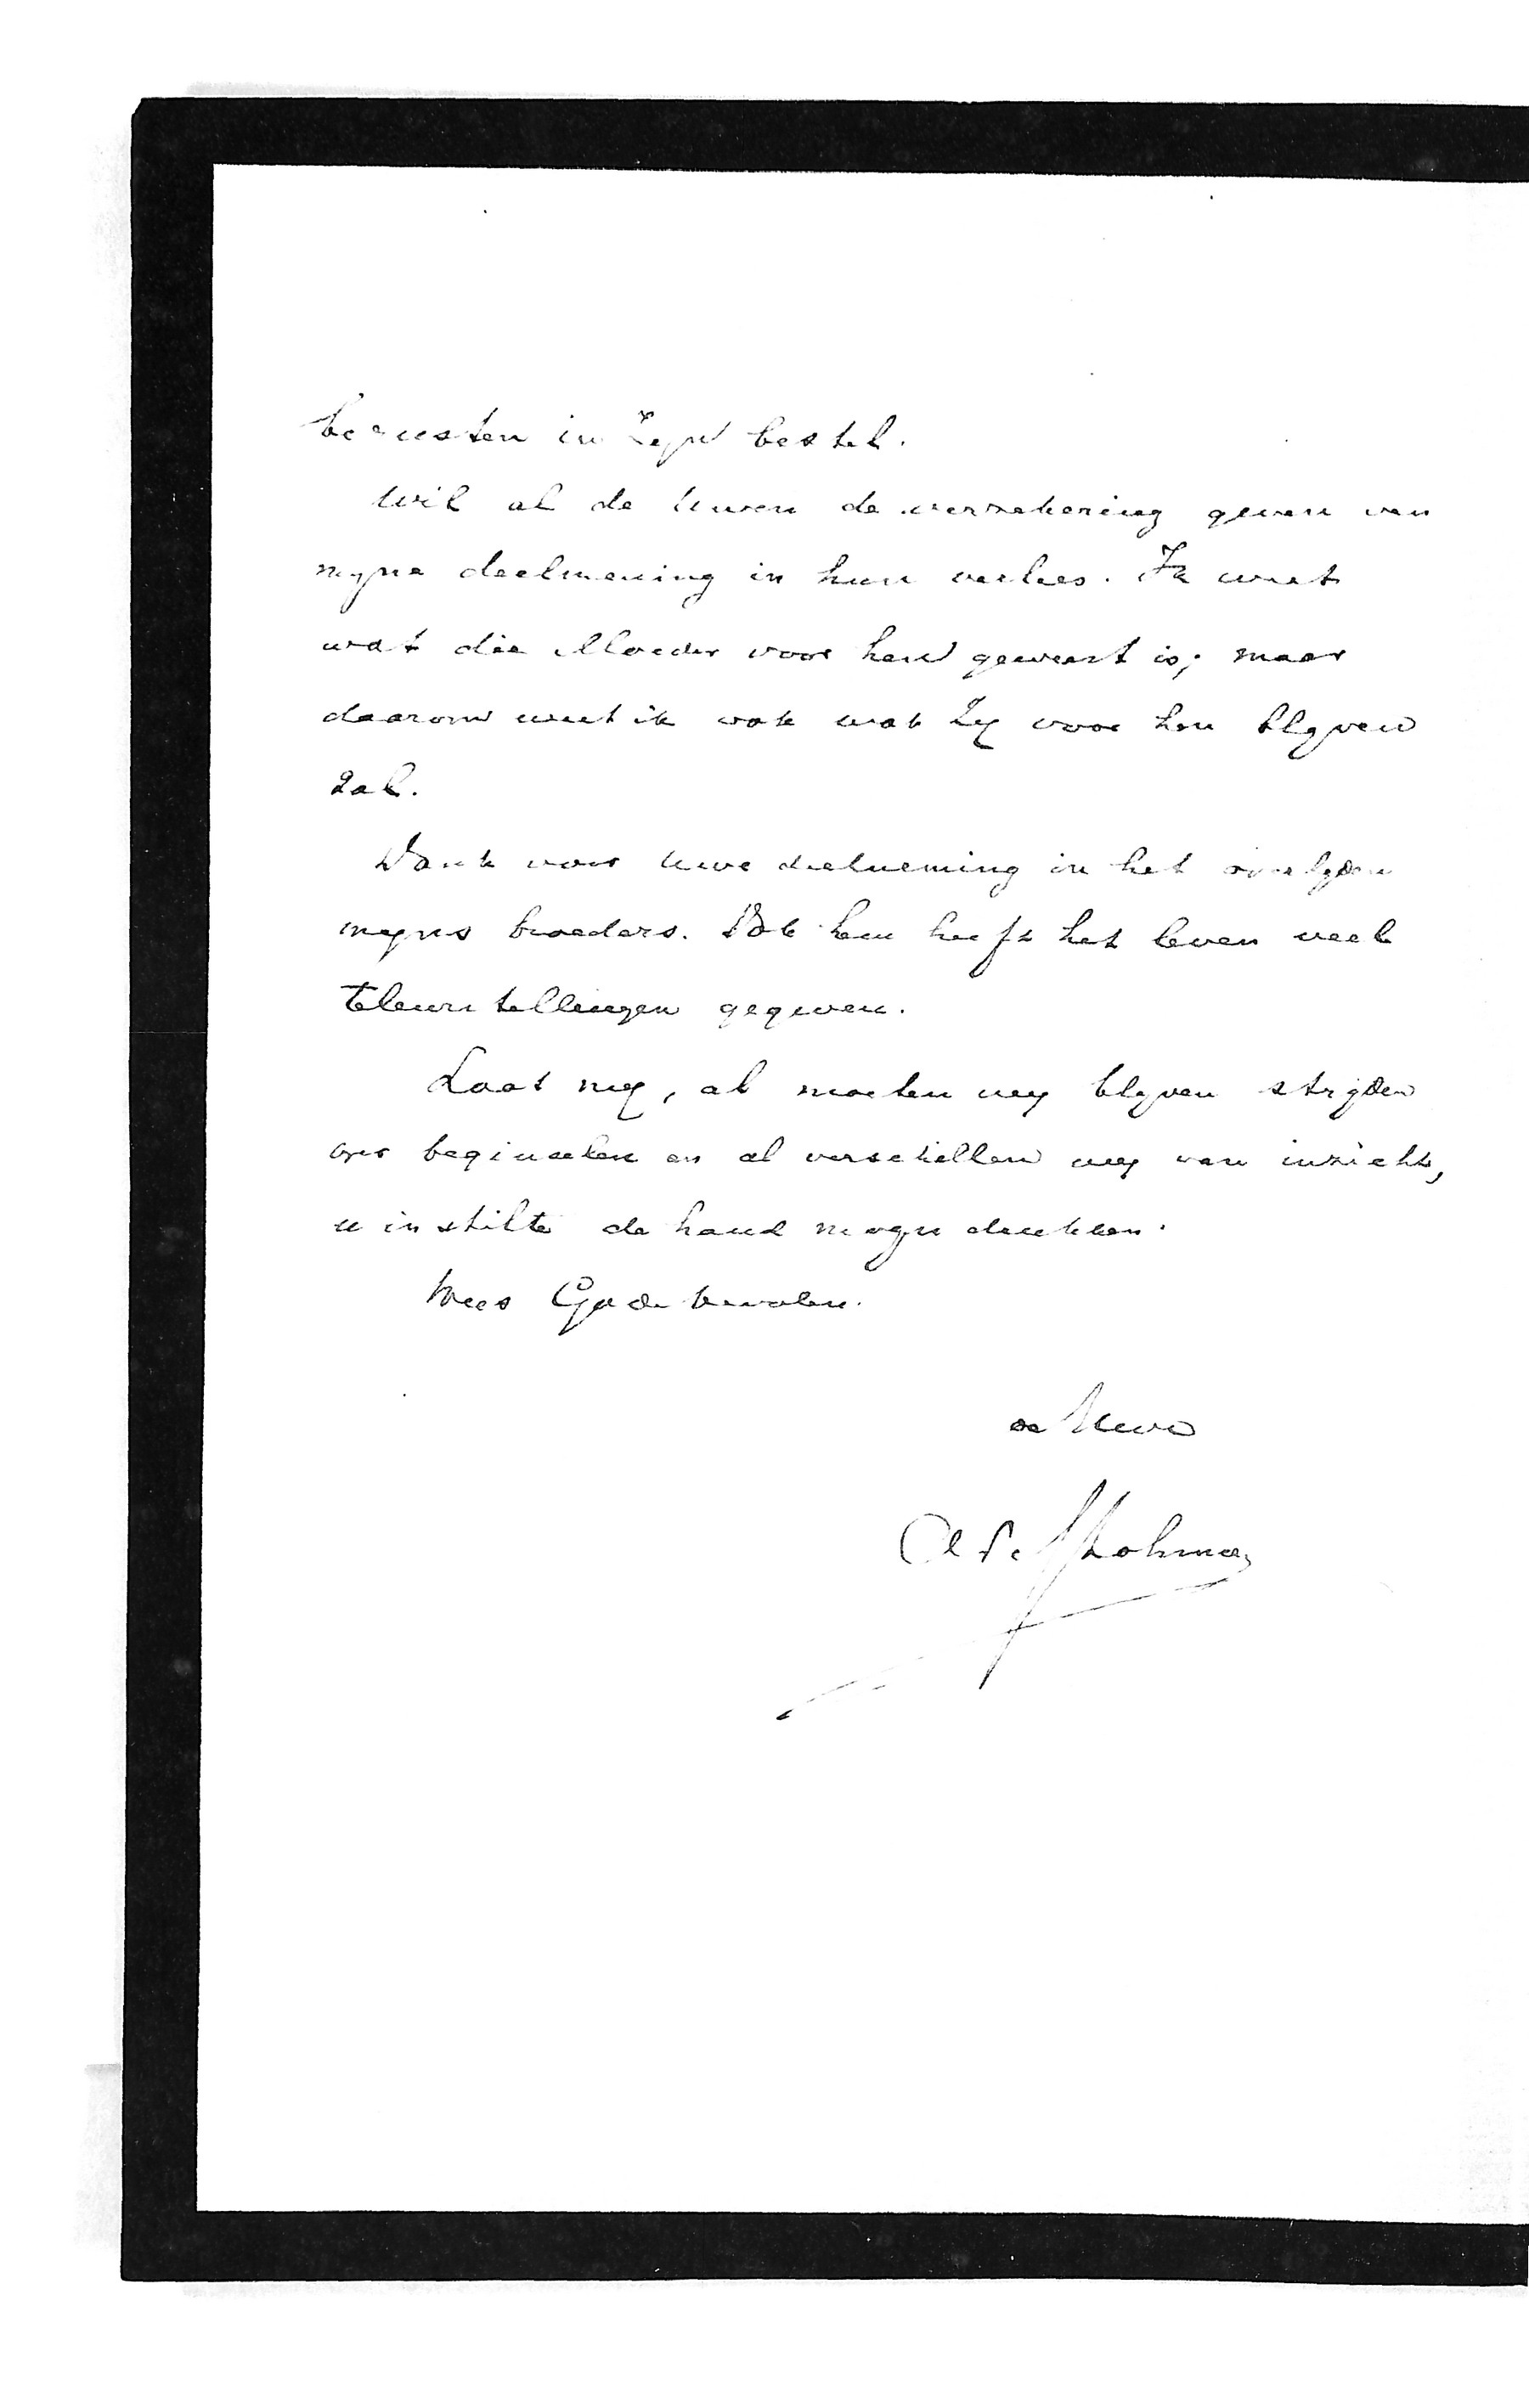 berusten in Zijn bestel.
Wil al de Uwen de verzekering geven van
mijne deelneming in hun verlies. Ik weet
wat die Moeder voor hen geweest is; maar
daarom weet ik ook wat zij voor hen blijven
zal.
Dank voor Uwe deelneming in het overlijden
mijns broeders. Ook hem heeft het leven veel
teleurstellingen gegeven.
Laat mij, al moeten wij blijven strijden
over beginselen en al verschillen wij van inzicht,
u in stilte de hand mogen drukken.
Wees Gode bevolen.
de Uwe
A F de S Lohman